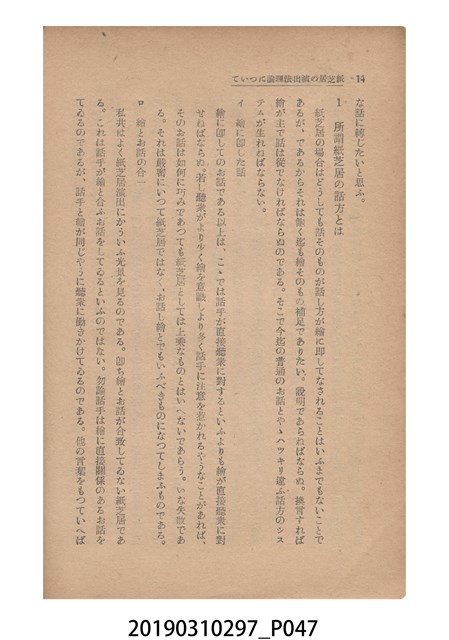 紙芝居の演出法理論について
14
な話に轉じたいと思ふ。
1 所謂紙芝居の話方とは
紙芝居の場合はどうしても話そのものが話し方が繪に即してなされることはいふまでもないことで
あるが、であるからそれは飽く迄も繪そのもの補足でありたい。說明であらねばならぬ。換言すれば
繪が主で話は從でなければならぬのである。そこで今迄の普通のお話とやゝハツキリ違ふ話方のシス
テムが生れねばならない。
イ 繪に即した話
繪に即してのお話である以上は、こゝでは話手が直接聽衆に對するといふよりも繪が直接聽衆に對
せねばならぬ。若し聽衆がより少く繪を意識しより多く話手に注意を惹かれるやうなことがあれば、
そのお話は如何に巧みであつても紙芝居としては上乘なものとはいへないであらう。いな失敗であ
る。それは嚴密にいつて紙芝居ではなく、お話し繪とでもいふべきものになつてしまふものである。
ロ 繪とお話の合一
私共はよく紙芝居演出にかういふ光景を見るのである。卽ち繪とお話が合致してゐない紙芝居であ
る。これは話手が繪と合ふお話をしてゐるといふのではない。勿論話手は繪に直接關係のあるお話を
てゐるのであるが、話手と繪が同じやうに聽衆に働きかけてゐるのである。他の言葉をもつていへば
20190310297_P047